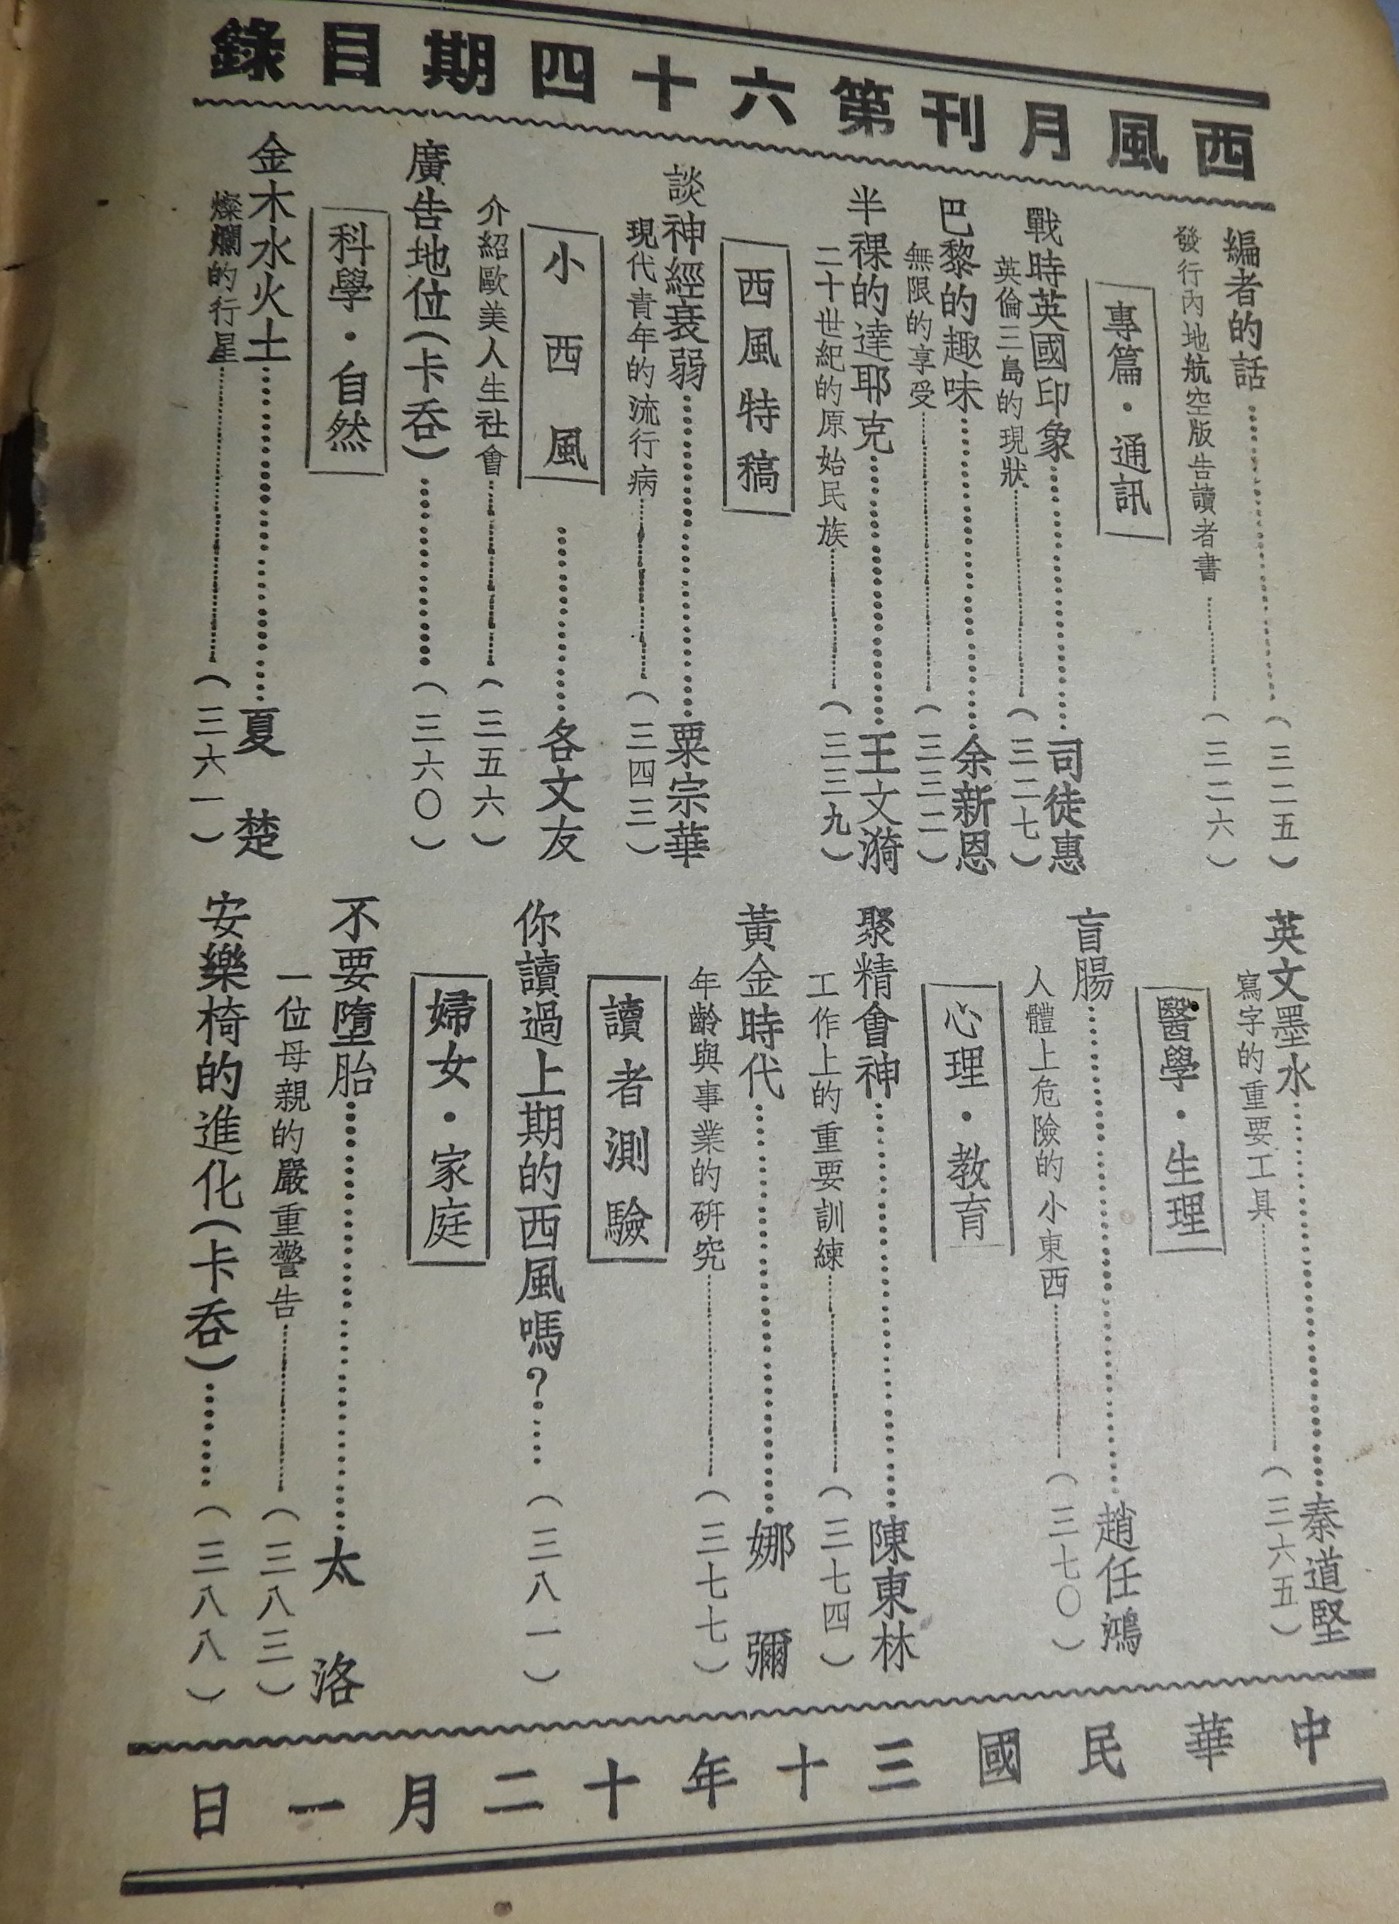 西風月刊第六十四期目錄
編者的話…………(三二五)
發行內地航空版告讀者書…………(三二六)
專篇·通訊
戰時英國印象…………司徒惠
英倫三島的現狀…………(三二七)
巴黎的趣味…………余新恩
無限的享受…………(三三二)
半裸的達耶克…………王文漪
二十世紀的原始民族…………(三三九)
西風特稿
談神經衰弱…………粟宗華
現代青年的流行病…………(三四三)
小西風
…………各文友
介紹歐美人生社會…………(三五六)
廣告地位(卡吞)…………(三六〇)
科學·自然
金木水火土…………夏楚
燦爛的行星…………(三六一)
英文墨水…………秦道堅
寫字的重要工具…………(三六五)
醫學·生理
盲腸…………趙任鴻
人體上危險的小東西…………(三七〇)
心理·教育
聚精會神…………陳東林
工作上的重要訓練…………(三七四)
黃金時代…………娜彌
年齡與事業的研究…………(三七七)
讀者測驗
你讀過上期的西風嗎?……(三八一)
婦女·家庭
不要墮胎…………太洛
一位母親的嚴重警告…………(三八三)
安樂椅的進化(卡吞)……(三八八)
中華民國三十年十二月一日